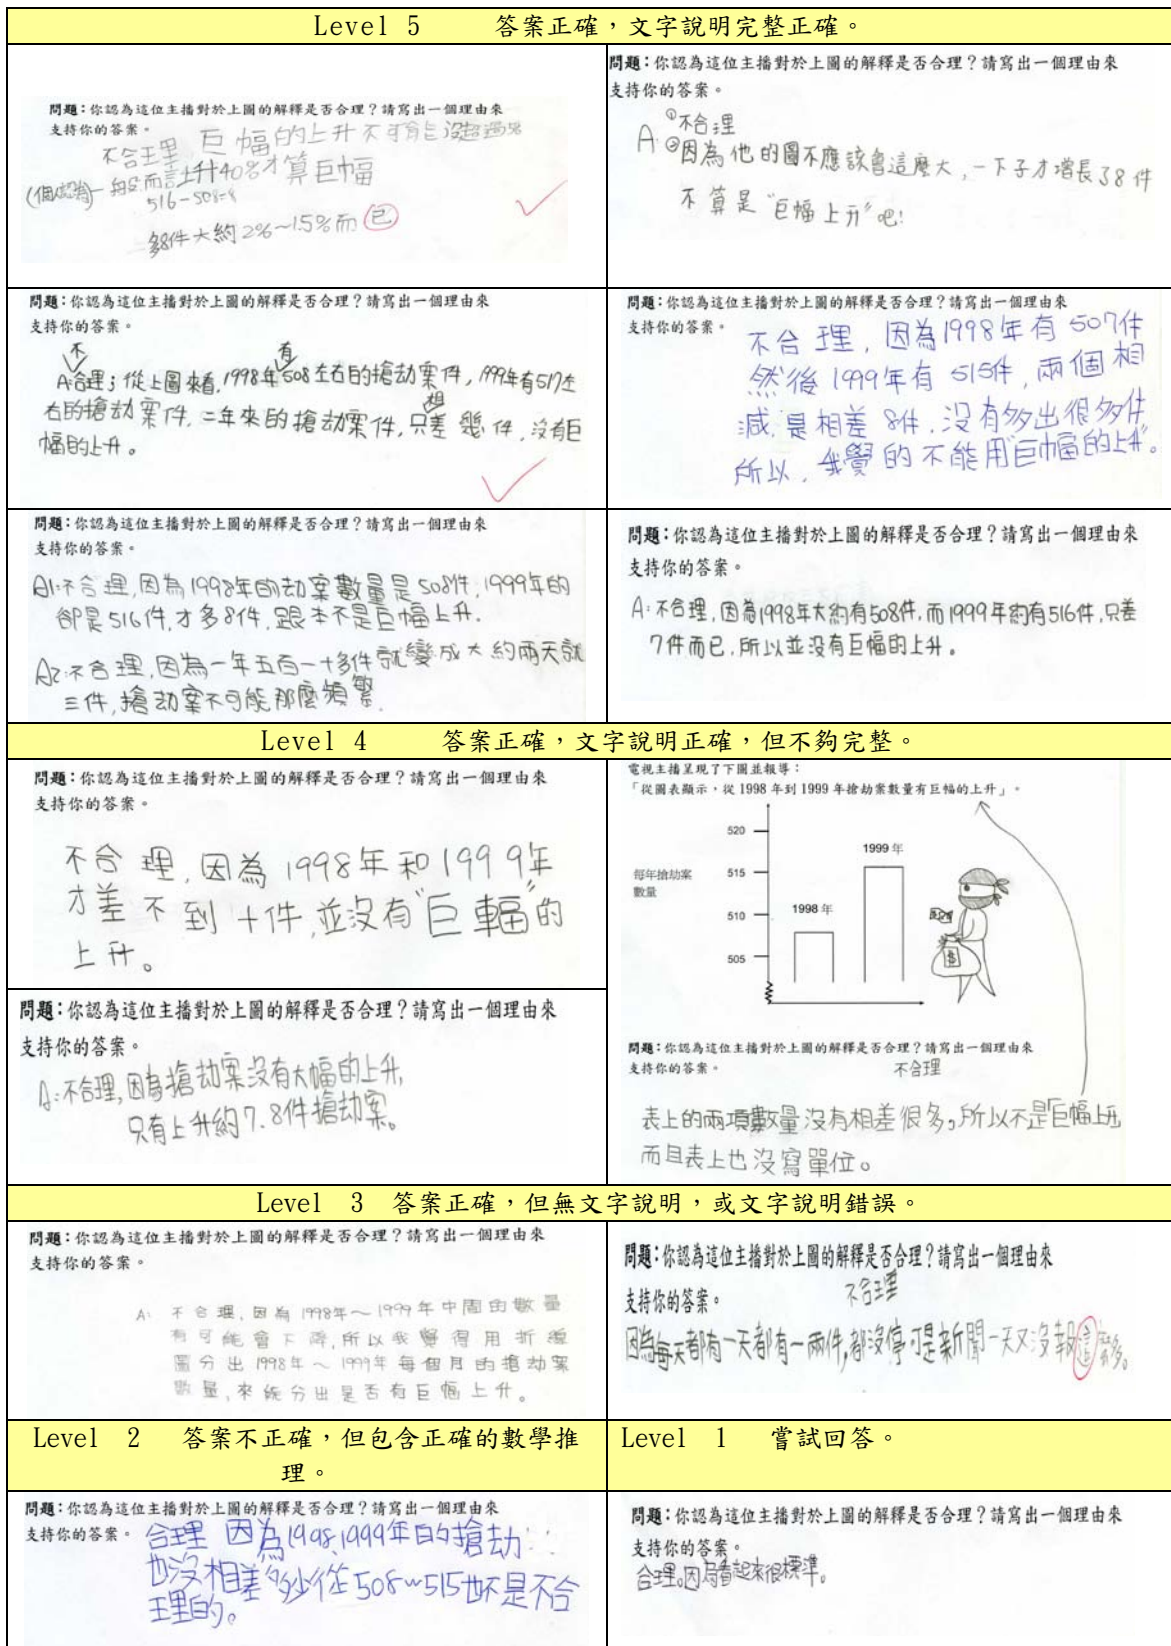 Level 5 答案正確，文字說明完整正確。
問題：你認為這位主播對於上圖的解釋是否合理？請寫出一個理由來
支持你的答案。
不合王里 巨幅的上升不可能沒超過%
(個人認為)一般而言上升40%才算巨幅
516-508=8
多8件大約2%~1.5%而已
問題：你認為這位主播對於上圖的解釋是否合理？請寫出一個理由來
支持你的答案。
A：①不合理
②因為他的圖不應該會這麼大，一下子才增長了8件
不算是"巨幅上升"吧！
問題：你認為這位主播對於上圖的解釋是否合理？請寫出一個理由來
支持你的答案。
A：不合理；從上圖來看，1998年有508左右的搶劫案件，1999年有517左
右的搶劫案件，二年來的搶劫案件，只相差幾件，沒有巨
幅的上升。
問題：你認為這位主播對於上圖的解釋是否合理？請寫出一個理由來
支持你的答案。
不合理，因為1998年有507件
然後1999年有515件，兩個相
減，是相差8件，沒有多出很多件
所以，我覺的不能用"巨幅的上升"。
問題：你認為這位主播對於上圖的解釋是否合理？請寫出一個理由來
支持你的答案。
A1：不合理，因為1998年的劫案數量是508件，1999年的
卻是516件，才多8件，跟本不是巨幅上升．
A2：不合理，因為一年五百一十多件就變成大約兩天就
三件，搶劫案不可能那麼頻繁．
問題：你認為這位主播對於上圖的解釋是否合理？請寫出一個理由來
支持你的答案。
A：不合理，因為1998年大約有508件，而1999年約有516件，只差
7件而已，所以並沒有巨幅的上升。
Level 4 答案正確，文字說明正確，但不夠完整。
問題：你認為這位主播對於上圖的解釋是否合理？請寫出一個理由來
支持你的答案。
不合理，因為1998年和1999年
才差不到十件，並沒有"巨幅"的
上升。
問題：你認為這位主播對於上圖的解釋是否合理？請寫出一個理由來
支持你的答案。
A：不合理，因為搶劫案沒有大幅的上升，
只有上升約7.8件搶劫案。
電視主播呈現了下圖並報導：
「從圖表顯示，從1998年到1999年搶劫案數量有巨幅的上升」。
520
1999年
每年搶劫案
數量
515
1998年
510
505
$
問題：你認為這位主播對於上圖的解釋是否合理？請寫出一個理由來
支持你的答案。 不合理
表上的兩項數量沒有相差很多，所以不是「巨幅上升」
而且表上也沒寫單位。
Level 3 答案正確，但無文字說明，或文字說明錯誤。
問題：你認為這位主播對於上圖的解釋是否合理？請寫出一個理由來
支持你的答案。
A： 不合理，因為1998年～1999年中間的數量
有可能會下降，所以我覺得用折線
圖分出1998年～1999年每個月的搶劫案
數量，來統分出是否有巨幅上升。
問題：你認為這位主播對於上圖的解釋是否合理？請寫出一個理由來
支持你的答案。 不合理
因為每天都有一天都有一兩件，都沒停可是新聞一天又沒報這麼多。
Level 2 答案不正確，但包含正確的數學推
理。
Level 1 嘗試回答。
問題：你認為這位主播對於上圖的解釋是否合理？請寫出一個理由來
支持你的答案。 合理 因為1998,1999年的搶劫
也沒相差多少從508~515也不是不合
王里的。
問題：你認為這位主播對於上圖的解釋是否合理？請寫出一個理由來
支持你的答案。
合理。因為看起來很標準。